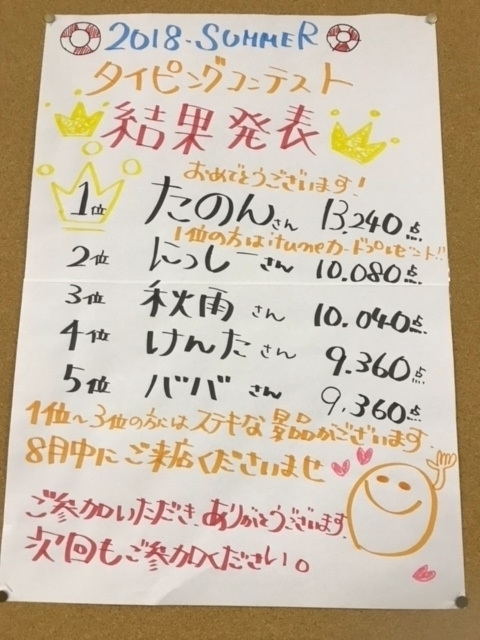 2018-SUMMER
タイピングコンテスト
結果発表
おめでとうございます!
1位 たのんさん 13,240点
1位の方はituneカードプレゼント!!
2位 にっしーさん 10.080点
3位 秋雨さん 10.040点
4位 けんたさん 9.360点
5位 ババさん 9,360点
1位〜3位の方にはステキな景品がございます
8月中にご来店くださいませ
ご参加いただき、ありがとうございます。
次回もご参加ください。